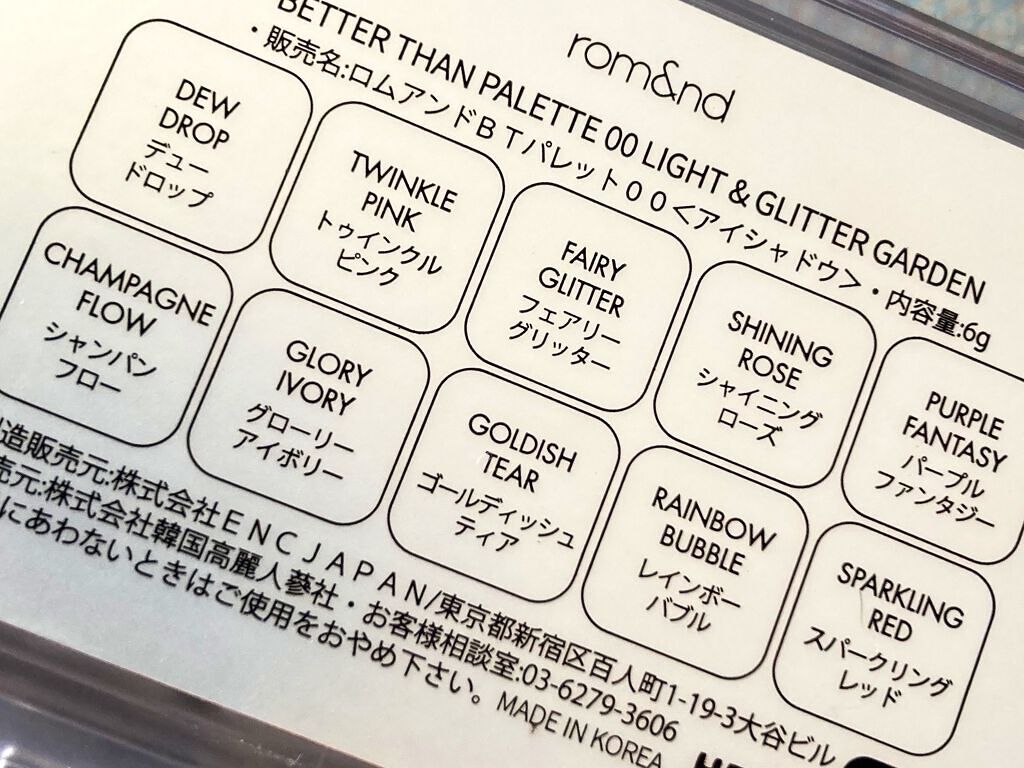 rom&nd
BETTER THAN PALETTE 00 LIGHT & GLITTER GARDEN
・販売名:ロムアンドＢＴパレット００＜アイシャドウ＞・内容量:6g
DEW
DROP
デュー
ドロップ
TWINKLE
PINK
トゥインクル
ピンク
FAIRY
GLITTER
フェアリー
グリッター
SHINING
ROSE
シャイニング
ローズ
PURPLE
FANTASY
パープル
ファンタジー
CHAMPAGNE
FLOW
シャンパン
フロー
GLORY
IVORY
グローリー
アイボリー
GOLDISH
TEAR
ゴールディッシュ
ティア
RAINBOW
BUBBLE
レインボー
バブル
SPARKLING
RED
スパークリング
レッド
造販売元:株式会社ＥＮＣＪＡＰＡＮ/東京都新宿区百人町1-19-3大谷ビル
売元:株式会社韓国高麗人蔘社・お客様相談室:03-6279-3606
にあわないときはご使用をおやめ下さい。MADE IN KOREA